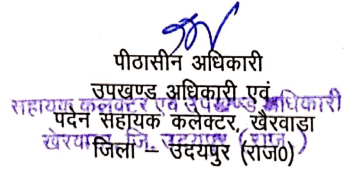 पीठासीन अधिकारी
उपखण्ड अधिकारी एवं
सहायक कलेक्टर एवं उपखण्ड अधिकारी
पदेन सहायक कलेक्टर, खैरवाडा
खेरवाडा जि. उदयपुर (राज.)
जिला – उदयपुर (राज0)